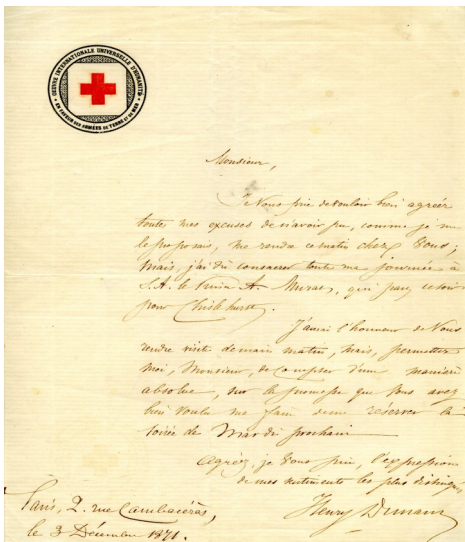 ŒUVRE INTERNATIONALE UNIVERSELLE D'HUMANITÉ
EN FAVEUR DES ARMÉES DE TERRE ET DE MER
Monsieur,
Je Vous prie de vouloir bien agréer
toutes mes excuses de n'avoir pu, comme je me
le proposais, me rendre ce matin chez Vous;
Mais, j'ai dû consacrer toute ma journée à
S. A. le Prince A. Murat, qui part ce soir
pour Chislehurst.
J'aurai l'honneur de Vous
rendre visite demain matin, Mais, permettez
moi, Monsieur, de compter d'une manière
absolue, sur la promesse que Vous avez
bien voulu me faire de me réserver la
soirée de Mardi prochain
Agréez, je Vous prie, l'expression
de mes sentiments les plus distingués
Henry Dunant
Paris, 2. rue Cambacérès,
le 3 Décembre 1871.